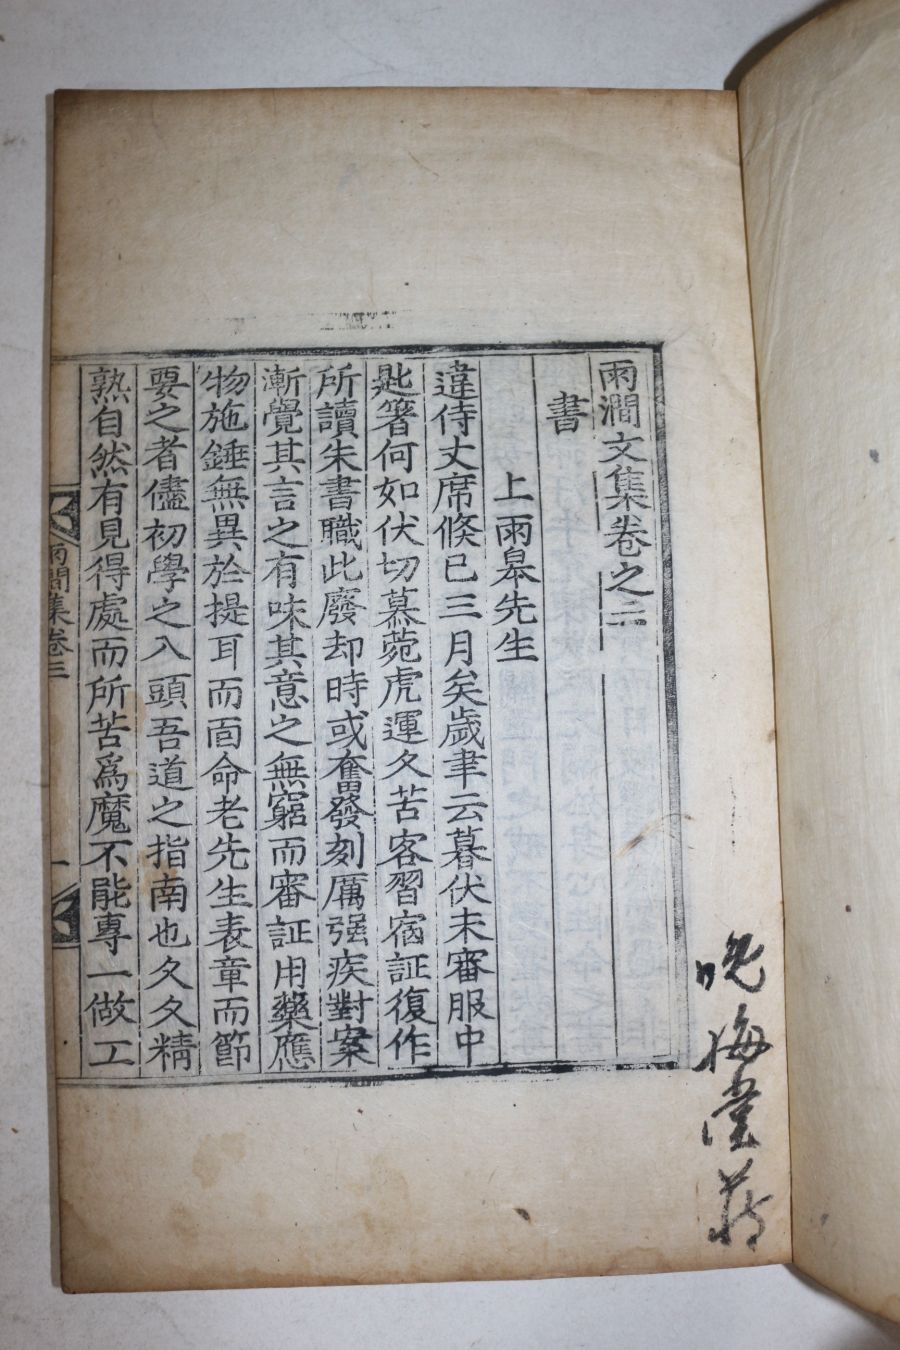 雨澗文集卷之三
書
上雨皐先生
違侍丈席倏已三月矣歲聿云暮伏未審服中
匙箸何如伏切慕菀虎運久苦客習宿証復作
所讀朱書職此廢却時或奮發刻厲强疾對案
漸覺其言之有味其意之無窮而審証用藥應
物施錘無異於提耳而面命老先生表章而節
要之者儘初學之入頭吾道之指南也久久精
熟自然有見得處而所苦爲魔不能專一做工
雨澗集卷三
一
晩悔堂藏